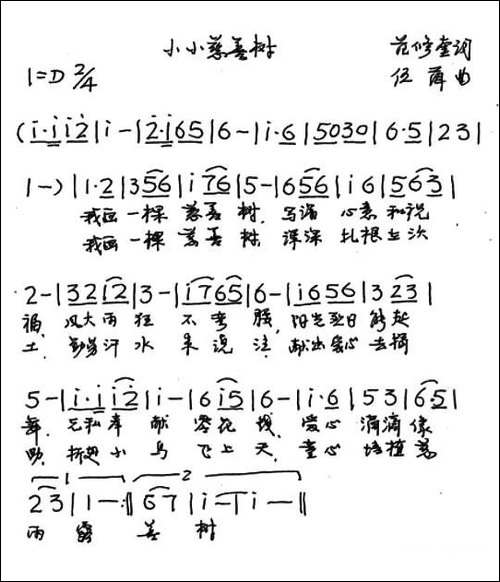 小小慈善树
范修奎词
1=D 2/4
伍 曲
(i·i i 2|i -|2·i 6 5|6 -|i·6|5 0 3 0|6·5|2 3|
1 -)|1·2|3 5 6|i 7 6|5 -|6 5 6|i 6|5 6 3|
我画一棵 慈善 树, 写满 心意 和祝
我画一棵 慈善 树 深深 扎根
2 -|3 2 1 2|3 -|i 7 6 5|6 -|i 6 5 6|3 2 3|
福, 风大雨狂 不弯腰, 阳光
土, 汗水 来浇注, 献出爱心 去
5 -|i·i i 2|i -|6 i 5|6 -|i·6|5 3|6·5|
舞, 无私奉献 零花钱, 爱心 滴滴像
助, 小鸟 飞上天, 童心 培植
1 2
2 3|1 -:‖6 7|i -|i -‖
雨露 善树